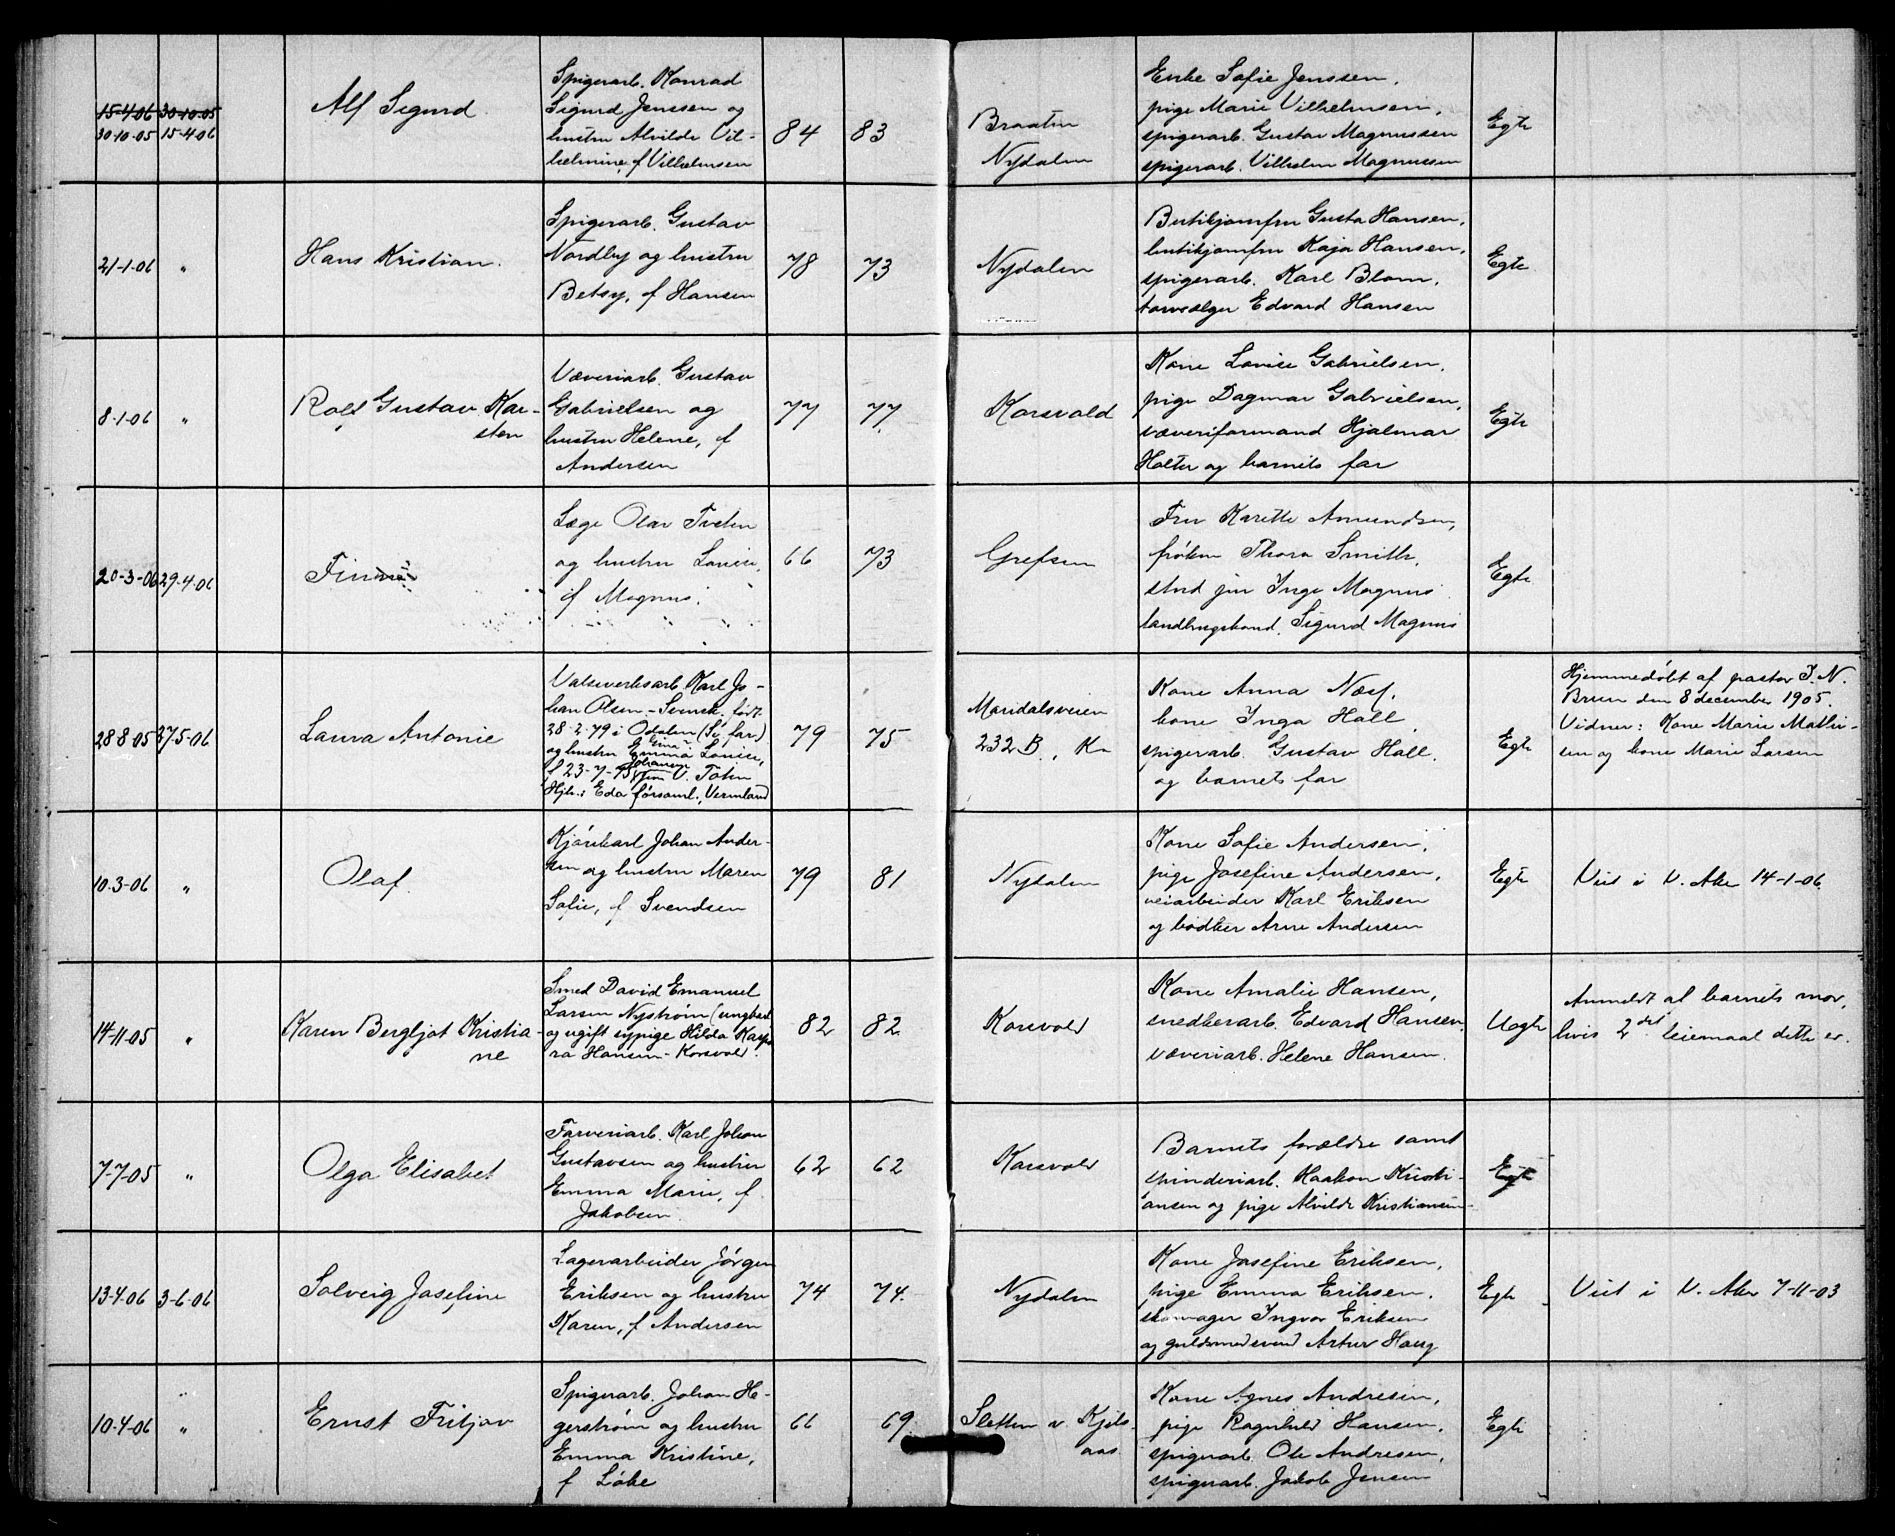 15-4-06 30-10-05
30-10-05 15-4-06
Alf Sigurd
Spigerarb. Konrad
Sigurd Jenssen og
hustru Alvilde Vil-
helmine, f Vilhelmsen
84
83
Braaten
Nydalen
Enke Sofie Jenssen,
pige Marie Vilhelmsen,
spigerarb. Gustav Magnussen
spigerarb. Vilhelm Magnussen
Egte
21-1-06
"
Hans Kristian.
Spigerarb. Gustav
Nordby og hustru
Betsy, f Hansen
78
73
Nydalen
Butikjomfru Gusta Hansen,
butikjomfru Kaja Hansen,
spigerarb. Karl Blom,
torvsælger Edvard Hansen
Egte
8-1-06
"
Rolf Gustav Kar-
sten
Væveriarb. Gustav
Gabrielsen og
hustru Helene, f
Andersen
77
77
Korsvold
Kone Lovise Gabrielsen,
pige Dagmar Gabrielsen,
væveriformand Hjalmar
Holter og barnets far
Egte
20-3-06
29-4-06
Finn
Læge Olav Tveten
og hustru Louise,
f Magnus.
66
73
Grefsen
Fru Karette Amundsen,
frøken Thora Smith,
stud jur Inge Magnus
landbrugskand. Sigurd Magnus
Egte
28-8-05
27-5-06
Laura Antonie
Valseverksarb. Karl Jo-
han Olsen - Svensk. født
28-2-79 i Odalen (Sv. far)
og hustru Emma Louise,
f 23-7-75 Johansen
Hjh.: Eda församl., Vermland
79
75
Maridalsveien
232 B, Kr
Kone Anna Næss,
kone Inga Hall,
spigerarb. Gustav Hall,
og barnets far
Egte
Hjemmedøbt af pastor J. N.
Brun den 8 december 1905.
Vidner: Kone Marie Mathi-
sen og kone Marie Larsen
10-3-06
"
Olaf.
Kjørekarl Johan Ander-
sen og hustru Maren
Sofie, f Svendsen
79
81
Nydalen
Kone Sofie Andersen,
pige Josefine Andersen,
veiarbeider Karl Eriksen
og bødker Arne Andersen
Egte
Viet i V. Aker 14-1-06
14-11-05
"
Karen Bergljot Kristia-
ne
Smed David Emanuel
Larsen Nystrøm (ungkarl
og ugift sypige Hilda Kasp
ra Hansen - Korsvold.
82
82
Korsvold
Kone Amalie Hansen,
snedkerarb. Edvard Hansen,
væveriarb. Helene Hansen.
Uegte
Anmeldt af barnets mor,
hvis 2det leiemaal dette er.
7-7-05
"
Olga Elisabet
Farveriarb. Karl Johan
Gustavsen og hustru
Emma Marie, f.
Jakobsen
62
62
Korsvold
Barnets forældre samt
spinderiarb. Haakon Kristi-
ansen og pige Alvilde Kristiansen
Egte
13-4-06
3-6-06
Solveig Josefine
Lagerarbeider Jørgen
Eriksen og hustru
Karen, f Andersen
74
74.
Nydalen
Kone Josefine Eriksen,
pige Emma Eriksen,
skomager Ingvar Eriksen
og guldsmedsvend Artur Haug
Egte
Viet i V. Aker 7-11-03
10-4-06
"
Ernst Fritjov
Spigerarb. Johan He-
gerstrøm og hustru
Emma Kristine,
f Løke
66
69
Sletten v. Kjels-
aas
Kone Agnes Andresen,
pige Ragnhild Hansen,
spigerarb. Ole Andresen,
spigerarb. Jakob Jensen
Egte